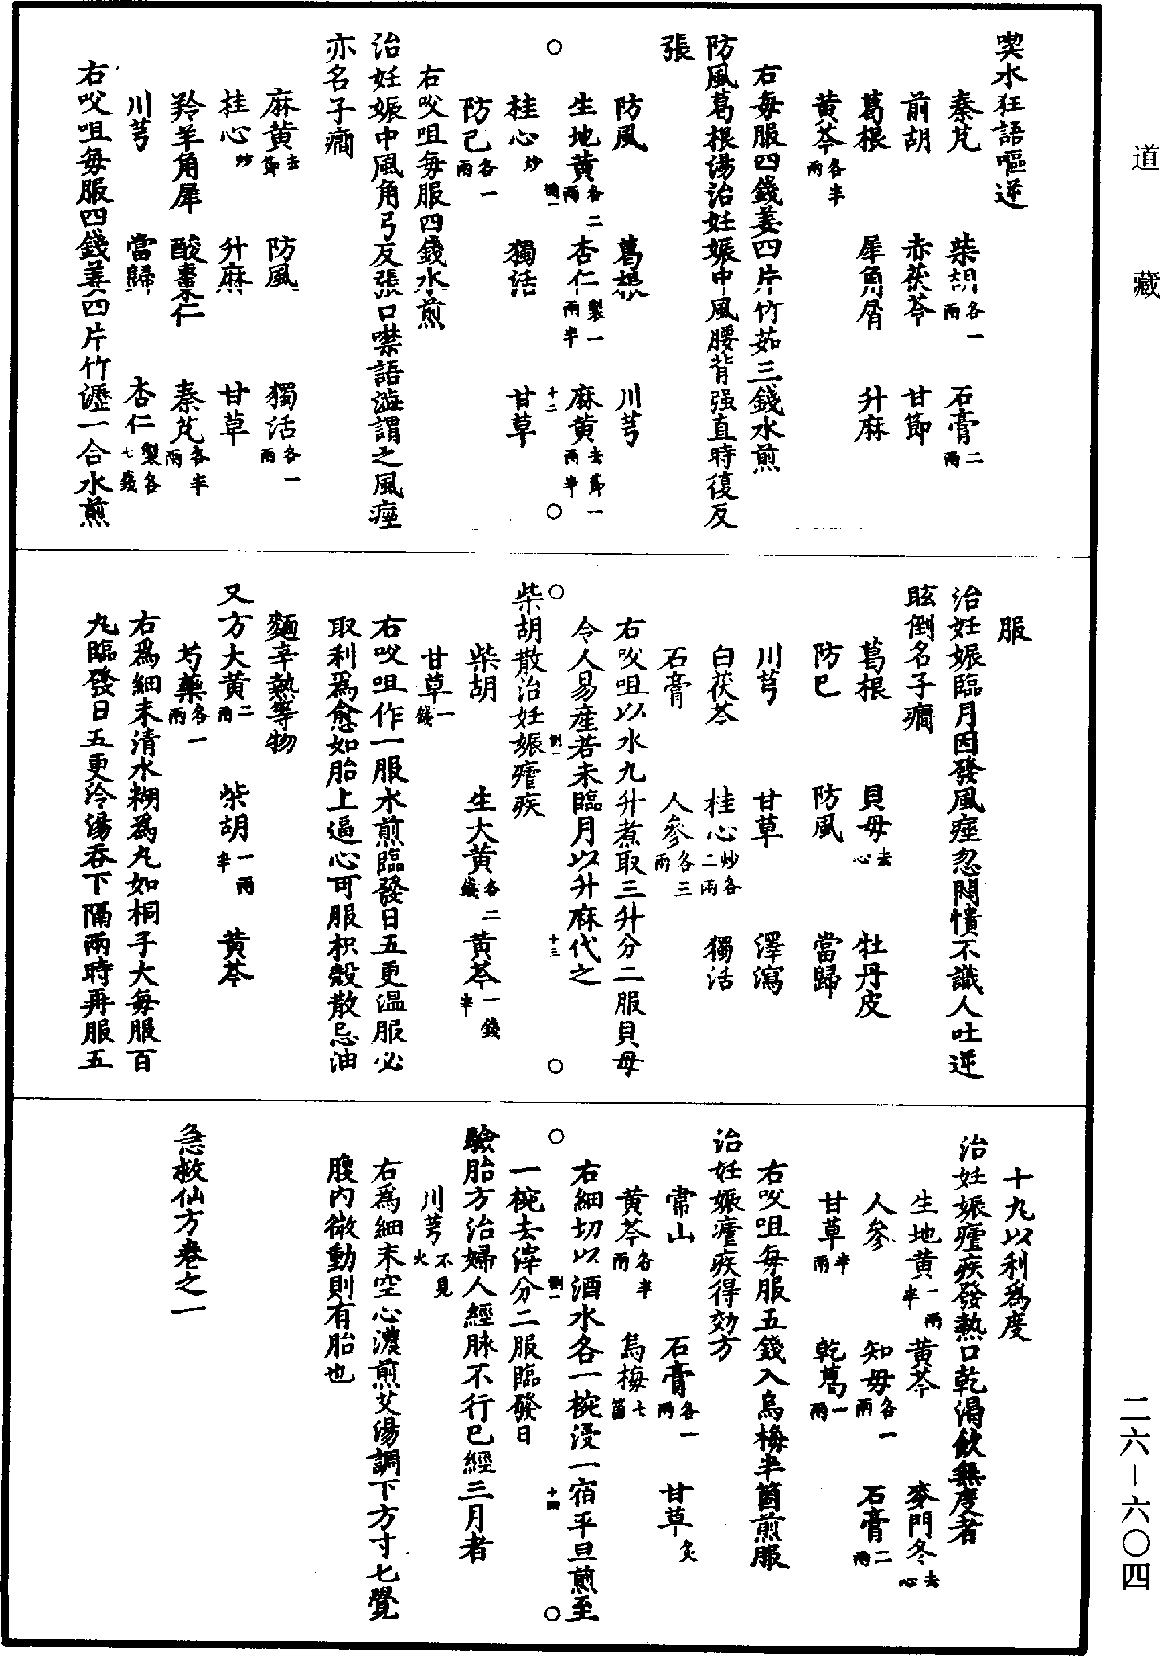 道藏
喫水狂語嘔逆
秦艽 柴胡各一兩 石膏二兩
前胡 赤茯苓 甘節
葛根 犀角屑 升麻
黃芩各半兩
右每服四錢姜四片竹茹三錢水煎
防風葛根湯治妊娠中風腰背强直時復反
張
防風 葛根 川芎
生地黃各二兩 杏仁製一兩半 麻黃去節一兩半
○ 補一 十二 ○
桂心炒 獨活 甘草
防己各一兩
右㕮咀每服四錢水煎
治妊娠中風角弓反張口噤語澁謂之風痙
亦名子癇
麻黃去節 防風 獨活各一兩
桂心炒 升麻 甘草
羚羊角犀 酸棗仁 秦艽各半兩
川芎 當歸 杏仁製各七錢
右㕮咀每服四錢姜四片竹瀝一合水煎
服
治妊娠臨月因發風痙忽悶憒不識人吐逆
眩倒名子癇
葛根 貝母去心 牡丹皮
防己 防風 當歸
川芎 甘草 澤瀉
白茯苓 桂心炒各二兩 獨活
石膏 人參各三兩
右㕮咀以水九升煮取三升分二服貝母
令人易產若未臨月以升麻代之
○ 十三 ○
柴胡散治妊娠瘧疾
柴胡 生大黃各二錢 黃芩一錢半
甘草一錢
右㕮咀作一服水煎臨發日五更溫服必
取利爲愈如胎上逼心可服枳殼散忌油
麵辛熱等物
又方大黃二兩 柴胡一兩半 黃芩
芍藥各一兩
右爲細末清水糊爲丸如桐子大每服百
丸臨發日五更冷湯吞下隔兩時再服五
十丸以利爲度
治妊娠瘧疾發熱口乾渴飲無度者
生地黃一兩半 黃芩 麥門冬去心
人參 知母各一兩 石膏二兩
甘草半兩 乾葛一兩
右㕮咀每服五錢入烏梅半箇煎服
治妊娠瘧疾得効方
常山 石膏各一兩 甘草炙
黃芩各半兩 烏梅七箇
右細切以酒水各一椀浸一宿平旦煎至
○ 十四 ○
一椀去滓分二服臨發日
驗胎方治婦人經脉不行已經三月者
川芎不見火
右爲細末空心濃煎艾湯調下方寸匕覺
腹內微動則有胎也
急救仙方卷之一
二六—六〇四